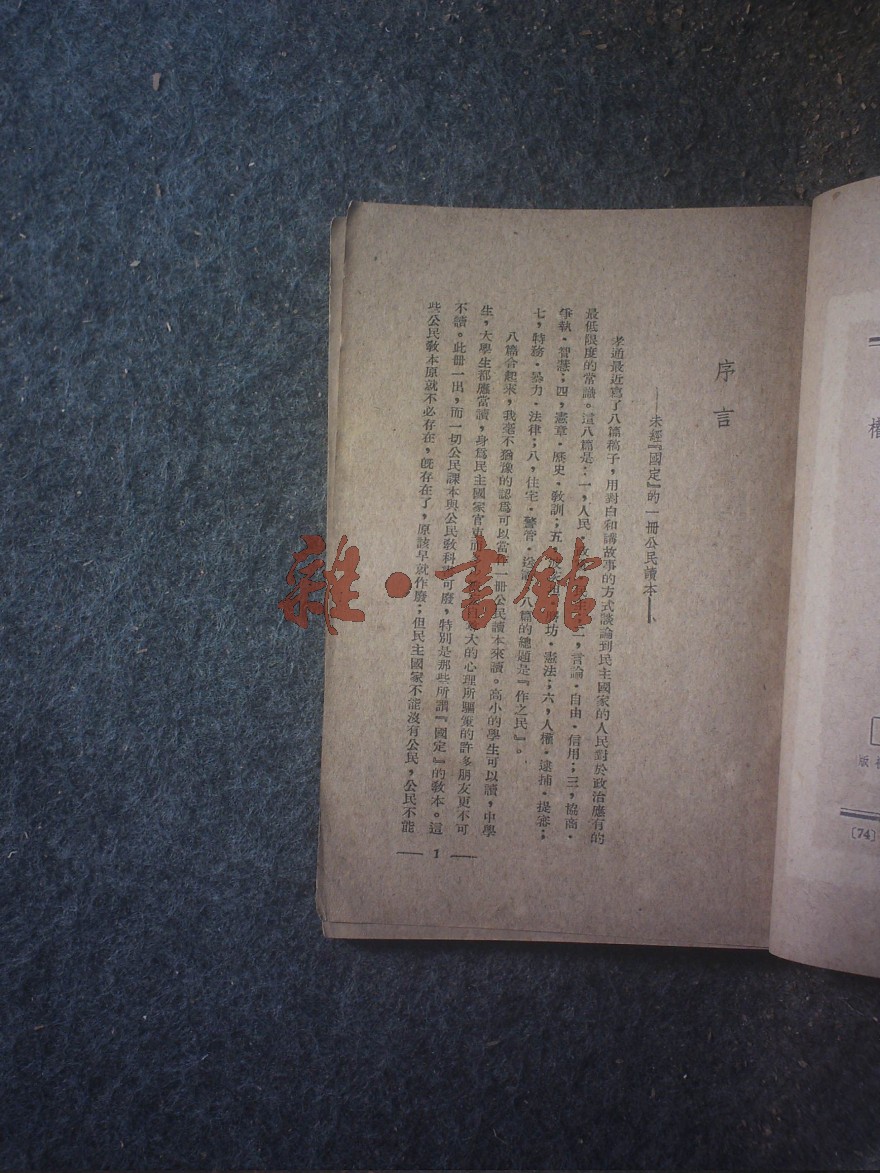 序言
——未經『國定』的一冊公民讀本——
孝通最近寫了八篇稿子，用對白和講故事的方式談論到民主國家的人民對於政治應有的
最低限度的常識。這八篇是：一，人民・二，言論・自由・信用；三，協商・
爭執・智慧；四，憲章・歷史・教訓；五，坊・憲法；六，人權・逮捕・提審；
七，特務・暴力・法律；八，住宅・警管・八篇的總題是『作之民』。
八篇合起來，我毫不猶豫的認爲可以當一冊公民讀本來讀。高小的學生可以讀，中學
生，大學生都應當讀，身爲民主國家官吏而大的心理所驅策的許多朋友更不可
不讀。此冊一出，而一切公民課本與公民教科可廢，特別是那些所謂『國定』的教本。這
些公民教本原就不必存在，旣存在了，原該早就作廢；但民主國家不能沒有公民，公民不能
— 1 —
雜・書館
權
版權
〔74〕